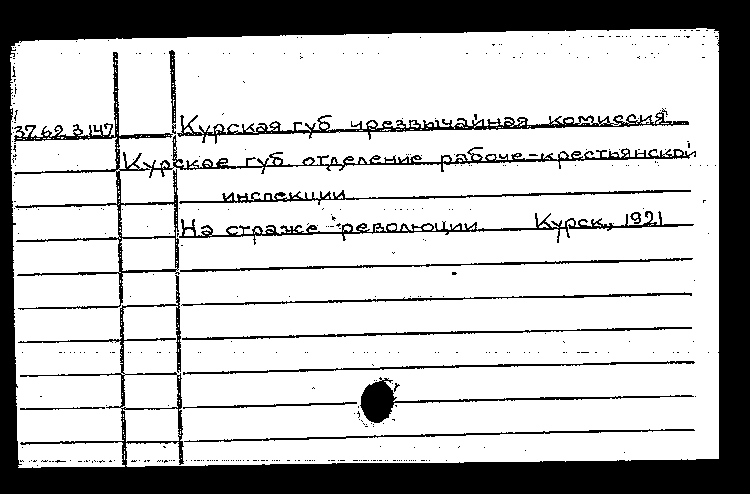 37.62.3.147 Курская губ чрезвычайная комиссия
Курское губ отделение рабоче-крестьянской
инспекции
На страже революции. Курск, 1921